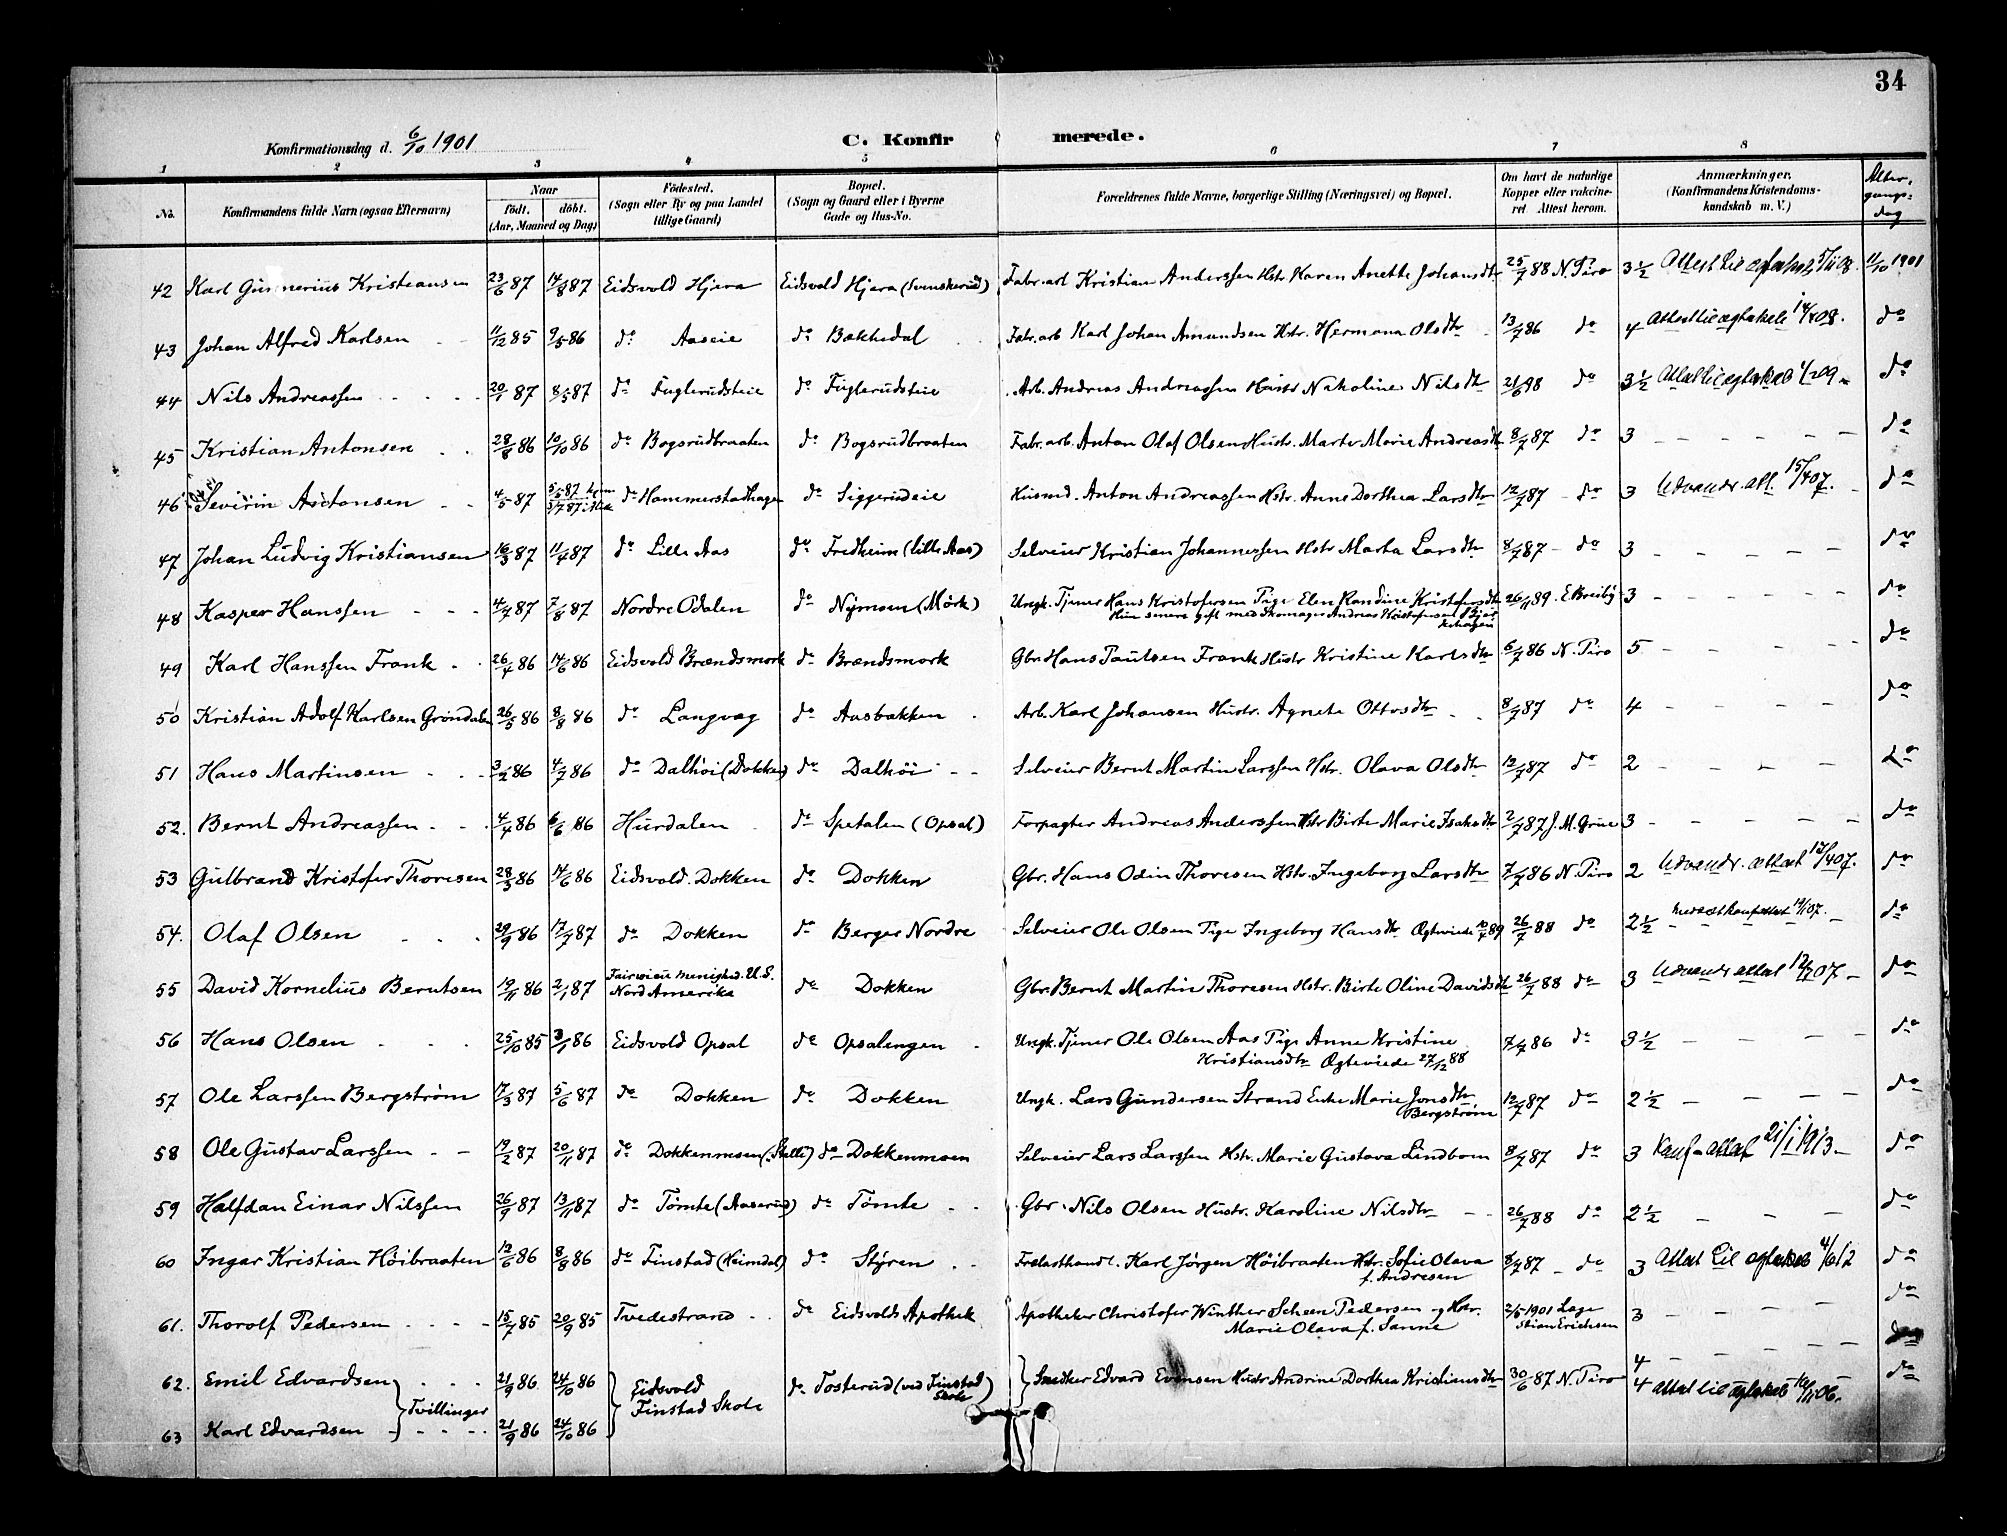 34
Konfirmationsdag d. 6/10 1901 C. Konfirmerede.
1 2 3 4 5 6 7 8
No. Konfirmandens fulde Navn (ogsaa Efternavn) Naar født. døbt. (Aar, Maaned og Dag) Fødested. (Sogn eller By og paa Landet tillige Gaard) Bopæl. (Sogn og Gaard eller i Byerne Gade og Hus-No. Forældrenes fulde Navne, borgerlige Stilling (Næringsvei) og Bopæl. Om havt de naturlige Kopper eller vakcineret. Attest herom. Anmærkninger. (Konfirmandens Kristendomskundskab m. V.) Altergangsdag
42 Karl Gunnerius Kristiansen 23/6 87 14/8 87 Eidsvold Hjera Eidsvold Hjera (Svenskerud) Fabr. arb Kristian Anderssen Hstr. Karen Anette Johansdtr 25/7 88 N. Piro 3 1/2 Attest til 11/10 1901
43 Johan Alfred Karlsen 11/12 85 9/5 86 do Aaseie do Bakkedal Fabr. arb Karl Johan Amundsen Hstr. Hermana Olsdtr 13/7 86 do 4 do
44 Nils Andreassen 20/1 87 8/5 87 do Fuglerudsteie do Fuglerudsteie Arb. Andreas Andreassen Hustr Nikoline Nilsdtr 21/6 98 do 3 1/2 do
45 Kristian Antonsen 28/8 86 10/10 86 do Bogsrudbraaten do Bogsrudbraaten Fabr. arb. Anton Olaf Olsen Hustr. Marte Marie Andreasdtr 8/7 87 do 3 do
46 Severin Antonsen 4/5 87 5/5 87 hjem 3/7 87 i Kirke do Hammerstadhagen do Siggerudeie Husmd. Anton Andreassen Hstr. Anne Dorthea Larsdtr 12/7 87 do 3 Udvandr. att. 15/4 07. do
47 Johan Ludvig Kristiansen 16/3 87 11/4 87 do Lille Aas do Fredheim (Lille Aas) Selveier Kristian Johannessen Hstr Marta Larsdtr 8/7 87 do 3 do
48 Kasper Hanssen 4/7 87 7/8 87 Nordre Odalen do Nymoen (Mörk) Ungk. Tjener Hans Kristofersen Pige Elen Randine Kristofersdtr 26/11 89. E. Breiby 3 do
Hun senere gift med Skomager Andreas Kristofersen
49 Karl Hanssen Frank 26/4 86 14/6 86 Eidsvold Brændsmork do Brændsmork Gbr Hans Paulsen Frank Hustr Kristine Karlsdtr 6/7 86 N. Piro 5 do
50 Kristian Adolf Karlsen Gröndalen 26/5 86 8/8 86 do Langvag do Aasbakken Arb. Karl Johansen Hustr. Agnete Ottosdtr 8/7 87 do 4 do
51 Hans Martinsen 3/2 86 4/7 86 do Dalhöi (Dokken) do Dalhöi Selveier Bernt Martin Larssen Hstr. Olava Olsdtr 12/7 87 do 2 do
52. Bernt Andreassen 4/4 86 6/6 86 Hurdalen do Spetalen (Opsal) Forpagter Andreas Anderssen Hstr Birte Marie Isaksdtr 2/7 87 J. M. Grue 3 do
53 Gulbrand Kristofer Thoresen 28/3 86 14/6 86 Eidsvold Dokken do Dokken Gbr. Hans Odin Thoresen Hstr. Ingeborg Larsdtr 7/7 86 N. Piro 2 Udvandr. attest 17/4 07. do
54. Olaf Olsen 29/9 86 17/7 87 do Dokken do Berger Nordre Selveier Ole Olsen Pige Ingeborg Hansdtr Ægteviede 89 26/7 88 do 2 1/2 do
55 David Kornelius Berntsen 19/11 86 2/1 87 Fairview menighed. U. S. Nord Amerika do Dokken Gbr. Bernt Martin Thoresen Hstr. Birte Oline Davidsdtr 26/7 88 do 3 Udvandr attest 07 do
56 Hans Olsen 25/10 85 3/1 86 Eidsvold Opsal do Opsalengen Ungk. Tjener Ole Olsen Aas Pige Anne Kristine 7/7 86 do 3 1/2 do
Kristiansdtr Ægteviede 27/12 88
57 Ole Larssen Bergström 17/3 87 5/6 87 do Dokken do Dokken Ungk. Lars Gundersen Strand Enke Marie Jonsdtr 12/7 87 do 2 1/2 do
Bergström
58 Ole Gustav Larssen 19/2 87 20/11 87 do Dokkenmoen do Dokkenmoen Selveier Lars Larssen Hstr. Marie Gustava Lindbom 8/7 87 do 3 Konf. attest 21/1 1913 do
59 Halfdan Einar Nilssen 26/9 87 13/11 87 do Tömte (Aaserud) do Tömte Gbr. Nils Olsen Hustr. Karoline Nilsdtr 26/7 88 do 2 1/2 do
60 Ingar Kristian Höibraaten 12/6 86 8/8 86 do Finstad (Heimdal) do Styren Frelasthandl. Karl Jörgen Höibraaten Hstr. Sofie Olava 8/7 87 do 3 Attest til do
f. Andresen
61. Thorolf Pedersen 15/7 85 20/9 85 Tvedestrand do Eidsvolds Apothek Apotheker Christofer Winther Scheen Pedersen og Hstr. 2/5 1901 Læge Stian Erichsen 3 do
Marie Olava f. Sanne
62. Emil Edvardsen 21/9 86 24/10 86 Eidsvold Finstad Skole do Tosterud (ved Finstad Skole) Smedker Edvard Evensen Hustr Andrine Dorthea Kristiansdtr 30/6 87 N. Piro 4 do
Tvillinger
63 Karl Edvardsen 21/9 86 24/10 86 4